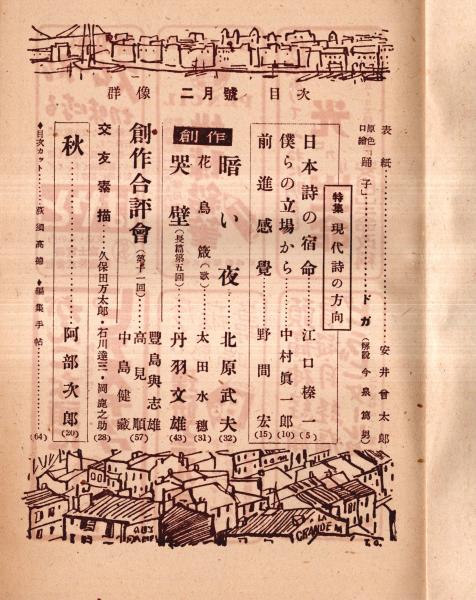 群像 二月號 目次
表紙……安井曾太郎
原色口繪「踊子」……ドガ(解說 今泉篤男)
特集 現代詩の方向
日本詩の宿命……江口榛一(5)
僕らの立場から……中村眞一郎(10)
前進感覺……野間宏(15)
創作
暗い夜……北原武夫(32)
花鳥箴(歌)……太田水穗(31)
哭壁(長篇第五回)……丹羽文雄(43)
創作合評會(第十一回)……豐島與志雄 高見順 中島健藏(57)
交友素描……久保田万太郎・石川達三・岡鹿之助(28)
秋……阿部次郎(20)
♦目次カット……荻須高德 ♦編集手帖……(64)
GRANDE